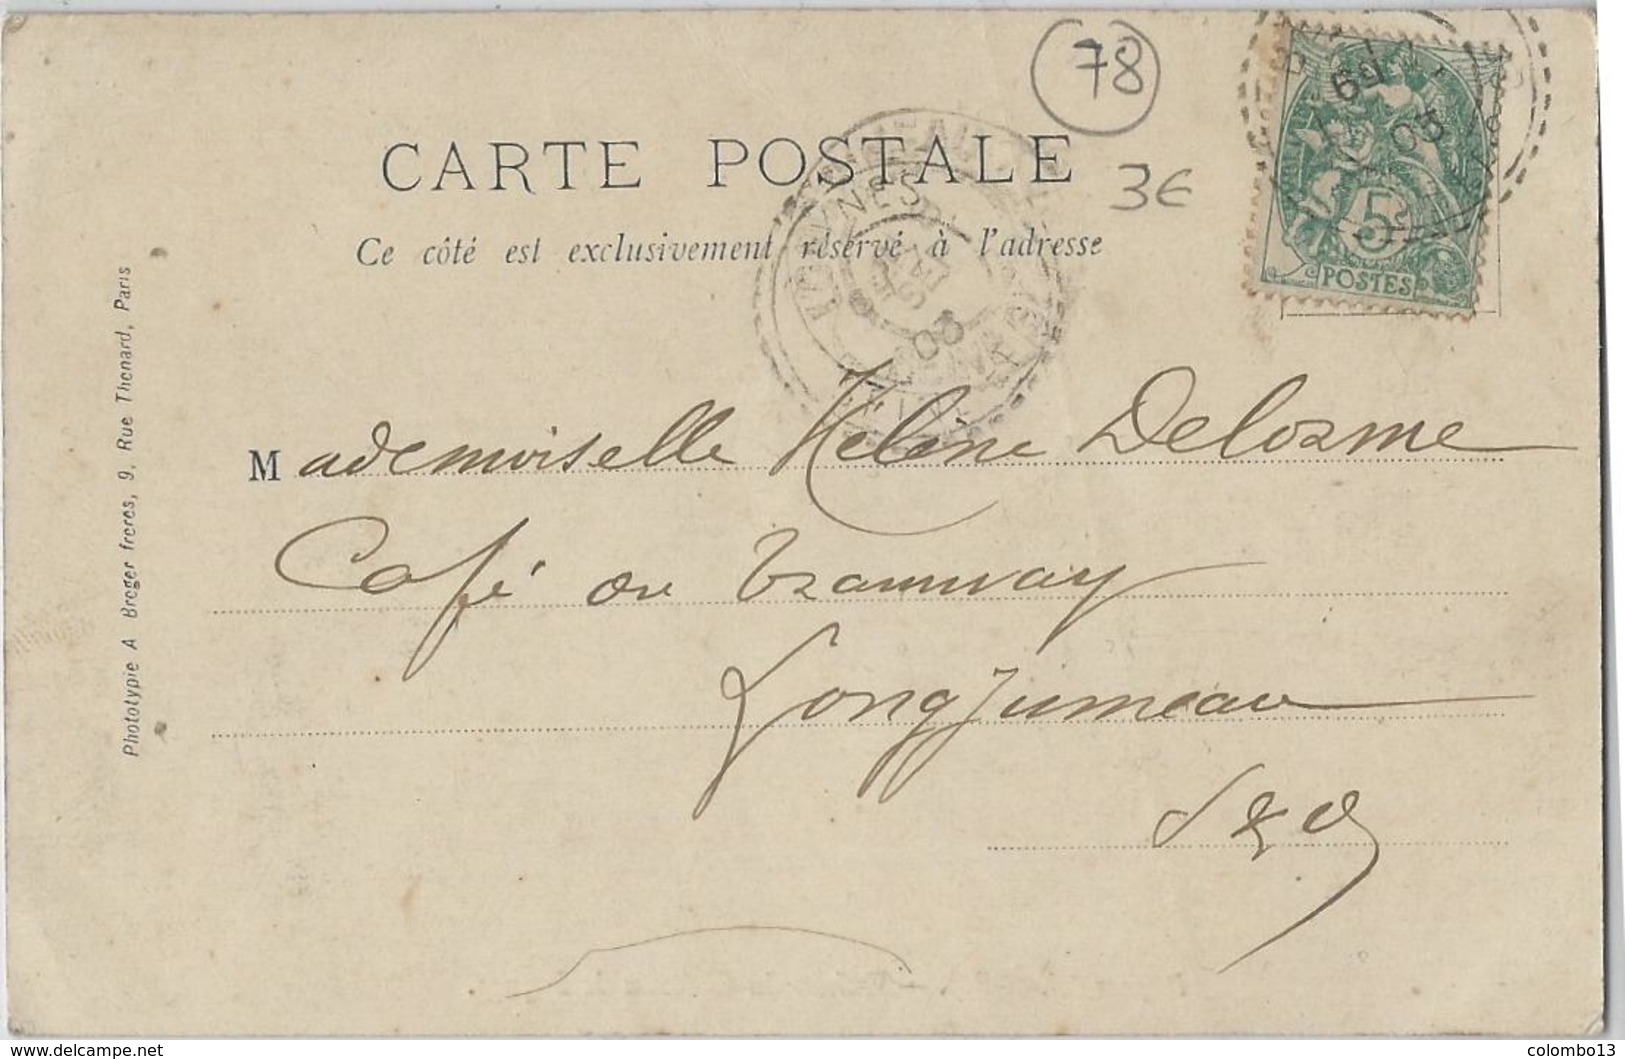 78
CARTE POSTALE
3€
Ce côté est exclusivement réservé à l'adresse
03
03
5c
POSTES
Mademoiselle Hélène Delorme
Café du Tramway
Longjumeau
S & O
Phototypie A Breger freres, 9, Rue Thenard, Paris
https://www.delcampe.net
colombo13